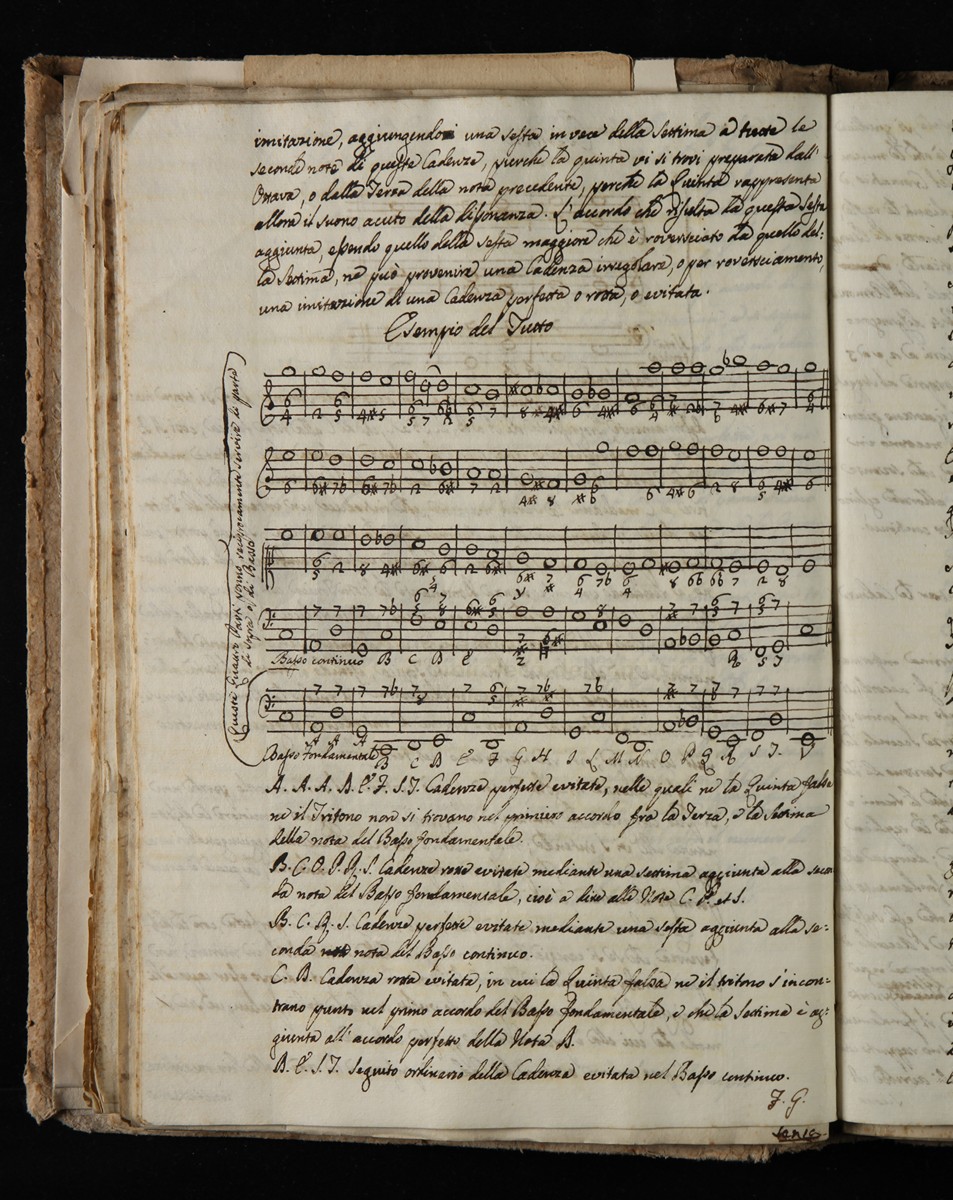 imitazione, aggiungendo una sesta in vece della settima a tutte le
seconde note di queste Cadenze, perchè la quinta vi si trovi preparata dall'
Ottava, o dalla Terza della nota precedente, perchè la Quinta rappresenta
allora il suono acuto della dissonanza. L'accordo che risulta da questa sesta
aggiunta, essendo quello della sesta maggiore che è roversciato da quello del:
la settima, ne può provenire una Cadenza irregolare, o per roversciamento,
una imitazione di una Cadenza perfetta o rotta, o evitata.
Esempio del Tutto
Queste quattro Parti ponno reciprocamente servire di parti
di sopra o, di Basso
Basso continuo B C B E
R S T
Basso fondamentale A A A B C B E F G H I L M N O P Q R S T. V
A. A. A. B. E. F. S. T. Cadenze perfette evitate, nelle quali ne la Quinta falsa
ne il Tritono non si trovano nel primiero accordo fra la Terza, e la settima
della nota del Basso fondamentale.
B. C. O. P. R. S. Cadenze rotte evitate mediante una settima aggiunta alla secon
da nota del Basso fondamentale, cioè a dire alle Note C. P. et S.
B. C. R. S. Cadenze perfette evitate mediante una sesta aggiunta alla se:
conda nota del Basso continuo.
C. B. Cadenza rotta evitata, in cui la Quinta falsa ne il tritono s'incon:
trano punto nel primo accordo del Basso fondamentale, e che la settima è ag:
giunta all'accordo perfetto della Nota B.
B. E. S. T. Seguito ordinario della Cadenza evitata nel Basso continuo.
F. G.